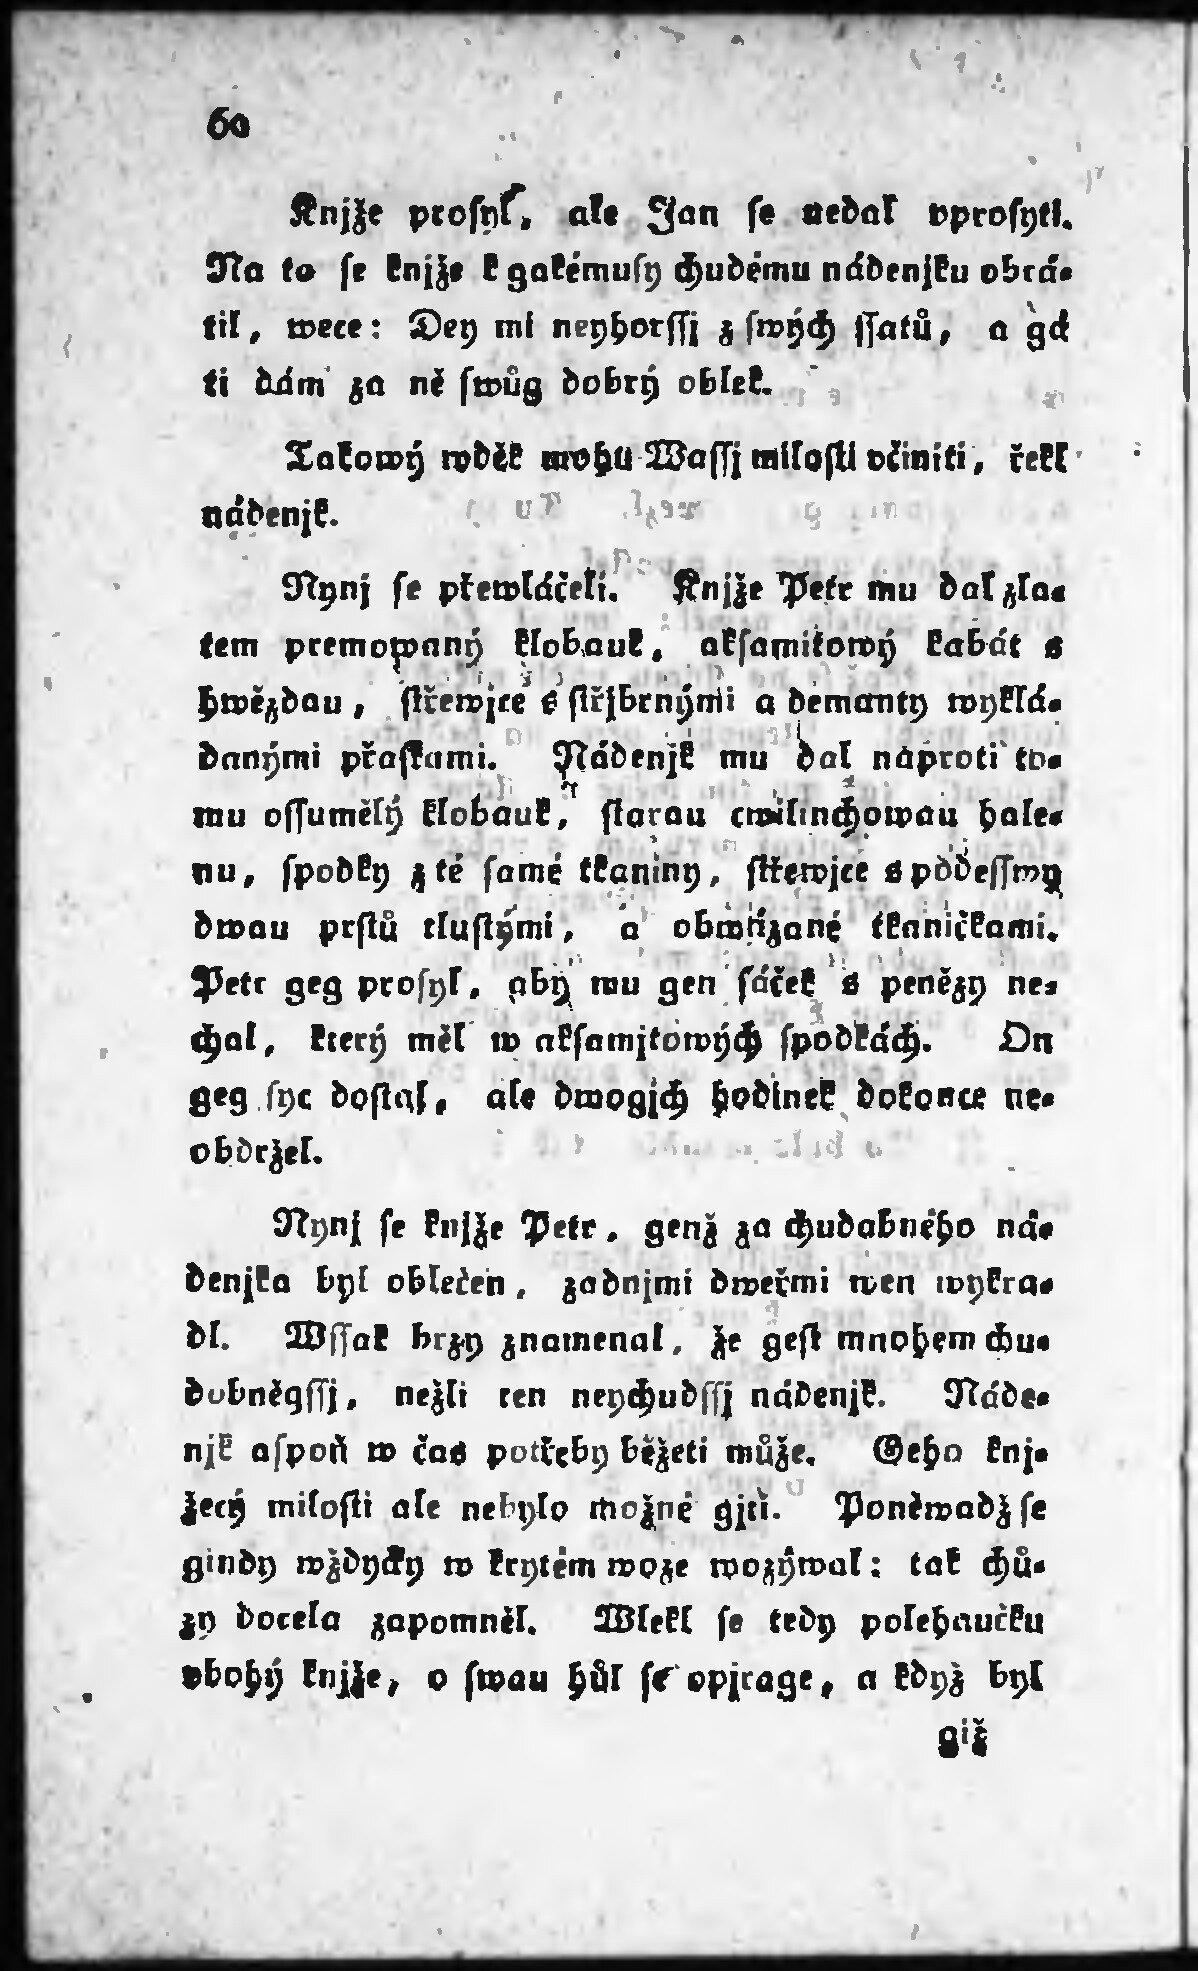 60
Knjže prosyl, ale Jan se nedal vprosyti.
Na to se knjže k gakémusy chudému nádenjku obrá-
til, wece: Dey mi neyhorssj z swých ssatů, a gá
ti dám za ně swůg dobrý oblek.
Takowý wděk mohu Wassj milosti včiniti, řekl
nádenjk.
Nynj se přewláčeli. Knjže Petr mu dal zla-
tem premowaný klobauk, aksamitowý kabát s
hwězdau, střewjce s střjbrnými a demanty wyklá-
danými přaskami. Nádenjk mu dal naproti to-
mu ossumělý klobauk, starau cwilinchowau hale-
nu, spodky z té samé tkaniny, střewjce s poddesswy
dwau prstů tlustými, a obwázané tkaničkami.
Petr geg prosyl, aby mu gen sáček s penězy ne-
chal, který měl w aksamjtowých spodkách. On
geg syc dostal, ale dwogjch hodinek dokonce ne-
obdržel.
Nynj se knjže Petr, genž za chudobného ná-
denjka byl oblečen, zadnjmi dweřmi wen wykra-
dl. Wssak brzy znamenal, že gest mnohem chu-
dobněgssj, nežli ten neychudssj nádenjk. Náde-
njk aspoň w čas potřeby běžeti může. Geho knj-
žecý milosti ale nebylo možné gjti. Poněwadž se
gindy wždycky w krytém woze wozýwal: tak chů-
zy docela zapomněl. Wlekl se tedy polehaučku
vbohý knjže, o swau hůl se opjrage, a když byl
giž